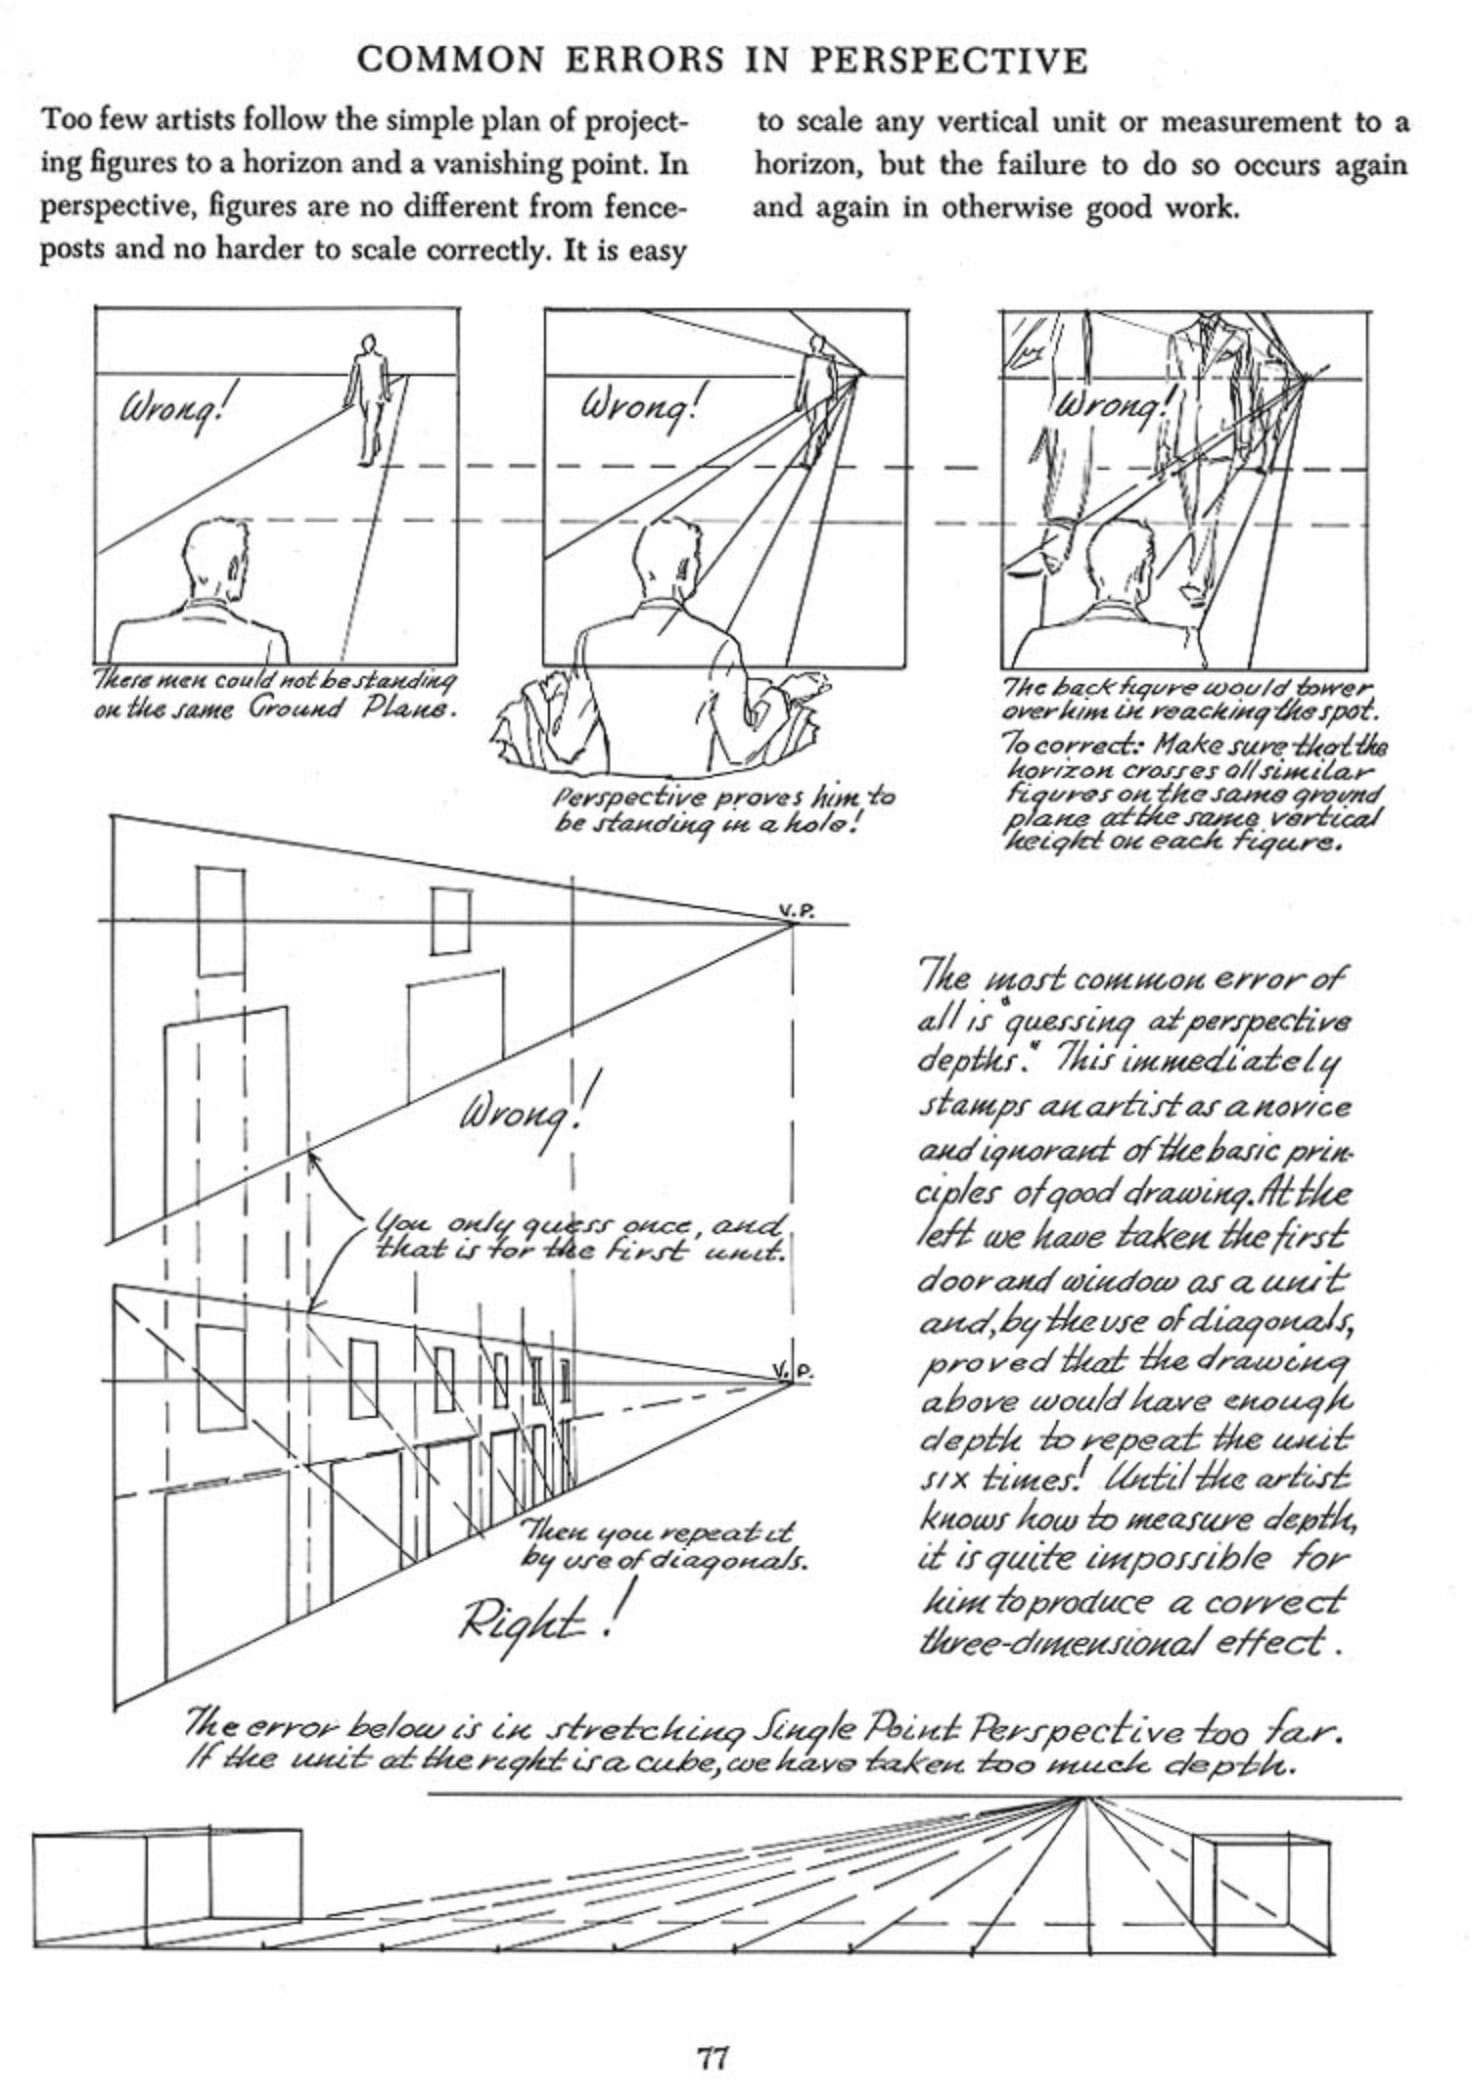 COMMON ERRORS IN PERSPECTIVE
Too few artists follow the simple plan of project-
ing figures to a horizon and a vanishing point. In
perspective, figures are no different from fence-
posts and no harder to scale correctly. It is easy
to scale any vertical unit or measurement to a
horizon, but the failure to do so occurs again
and again in otherwise good work.
Wrong!
These men could not be standing
on the same Ground Plane.
Wrong!
Perspective proves him to
be standing in a hole!
Wrong!
The back figure would tower
over him in reaching the spot.
To correct: Make sure that the
horizon crosses all similar
figures on the same ground
plane at the same vertical
height on each figure.
V.P.
Wrong!
You only guess once, and
that is for the first unit.
V.P.
Then you repeat it
by use of diagonals.
Right!
The most common error of
all is "guessing at perspective
depths." This immediately
stamps an artist as a novice
and ignorant of the basic prin-
ciples of good drawing. At the
left we have taken the first
door and window as a unit
and, by the use of diagonals,
proved that the drawing
above would have enough
depth to repeat the unit
six times! Until the artist
knows how to measure depth,
it is quite impossible for
him to produce a correct
three-dimensional effect.
The error below is in stretching Single Point Perspective too far.
If the unit at the right is a cube, we have taken too much depth.
77